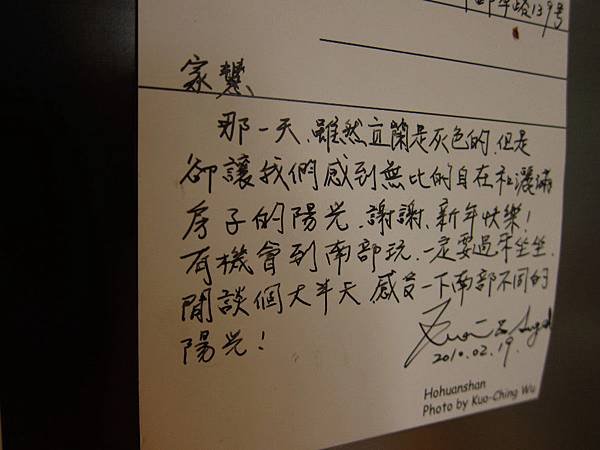 路139号
家
那一天、雖然宜蘭是灰色的、但是
卻讓我們感到無比的自在和灑滿
房子的陽光、謝謝、新年快樂!
有機會到南部玩、一定要過來坐坐、
閒談個大半天 感受一下南部不同的
陽光!
2010.02.19.
Hohuanshan
Photo by Kuo-Ching Wu